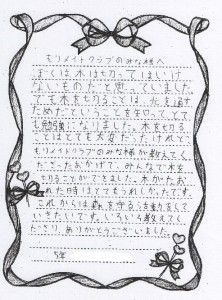 モリメイトクラブのみな様へ
ぼくは木は切ってはいけ
ないものだと思っていました。
でも木を切ることは、光を通す
ためだということを知って、とて
も勉強になりました。木を切る
ことはとても大変だったけれども
モリメイトクラブのみな様が教えてく
ださったおかげで、みんなで木を
切ることができました。木がたお
れた時はとてもうれしかったです。
これからは森を守る活動をして
いきたいです。いろいろ教えてく
ださり、ありがとうございました。
5年